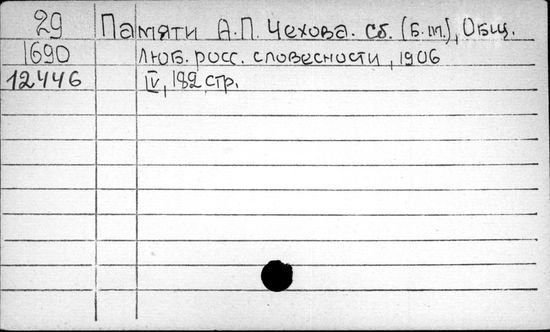 29 Памяти А.П. Чехова. Сб. (Б.м.), Общ.
1690 люб. росс. словесности, 1906
12446 IV, 182 стр.